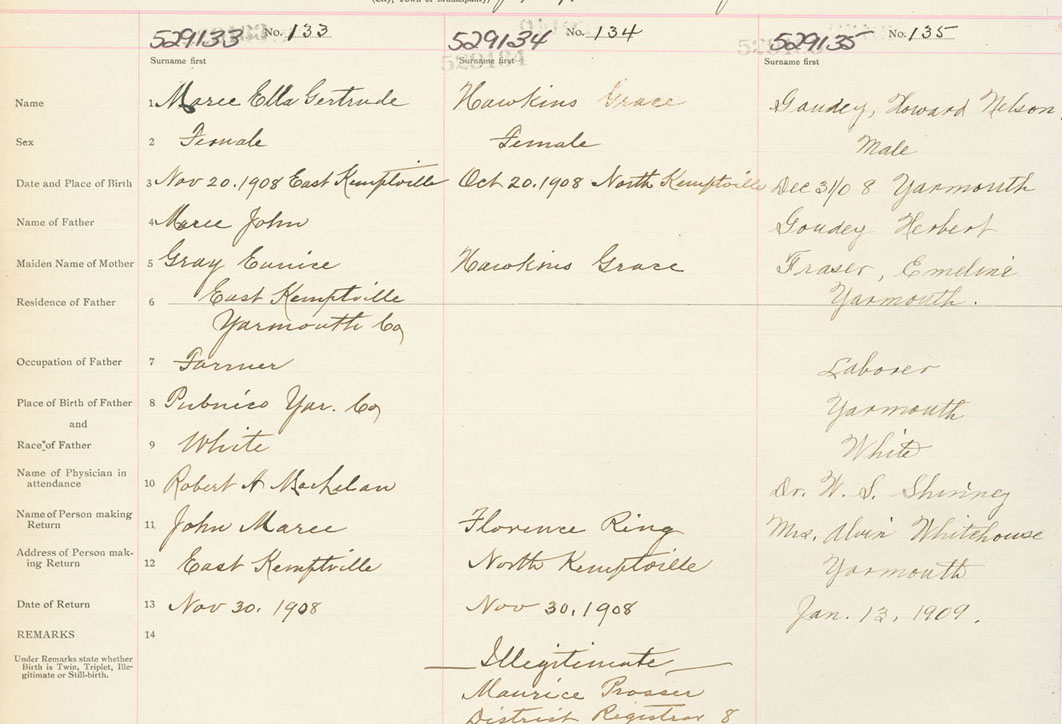 (City, Town or Municipality)
529133 No. 133 529134 No. 134 529135 No. 135
529134
Surname first Surname first Surname first
Name 1 Maree Ella Gertrude Hawkins Grace Goudey, Howard Nelson
Sex 2 Female Female Male
Date and Place of Birth 3 Nov 20.1908 East Kemptville Oct 20.1908 North Kemptville Dec 31/08 Yarmouth
Name of Father 4 Maree John Goudey Herbert
Maiden Name of Mother 5 Gray Eunice Hawkins Grace Fraser, Emeline
Residence of Father 6 East Kemptville Yarmouth.
Yarmouth Co
Occupation of Father 7 Farmer Laborer
Place of Birth of Father 8 Pubnico Yar. Co Yarmouth
and
Race of Father 9 White White
Name of Physician in
attendance 10 Robert A Dr. W. S.
Name of Person making
Return 11 John Maree Florence Ring Mrs. Alvin Whitehouse
Address of Person mak-
ing Return 12 East Kemptville North Kemptville Yarmouth
Date of Return 13 Nov 30. 1908 Nov 30.1908 Jan. 13, 1909.
REMARKS 14
Under Remarks state whether
Birth is Twin, Triplet, Ille-
gitimate or Still-birth.
Illegitimate
Maurice Prosser
District Registrar 8